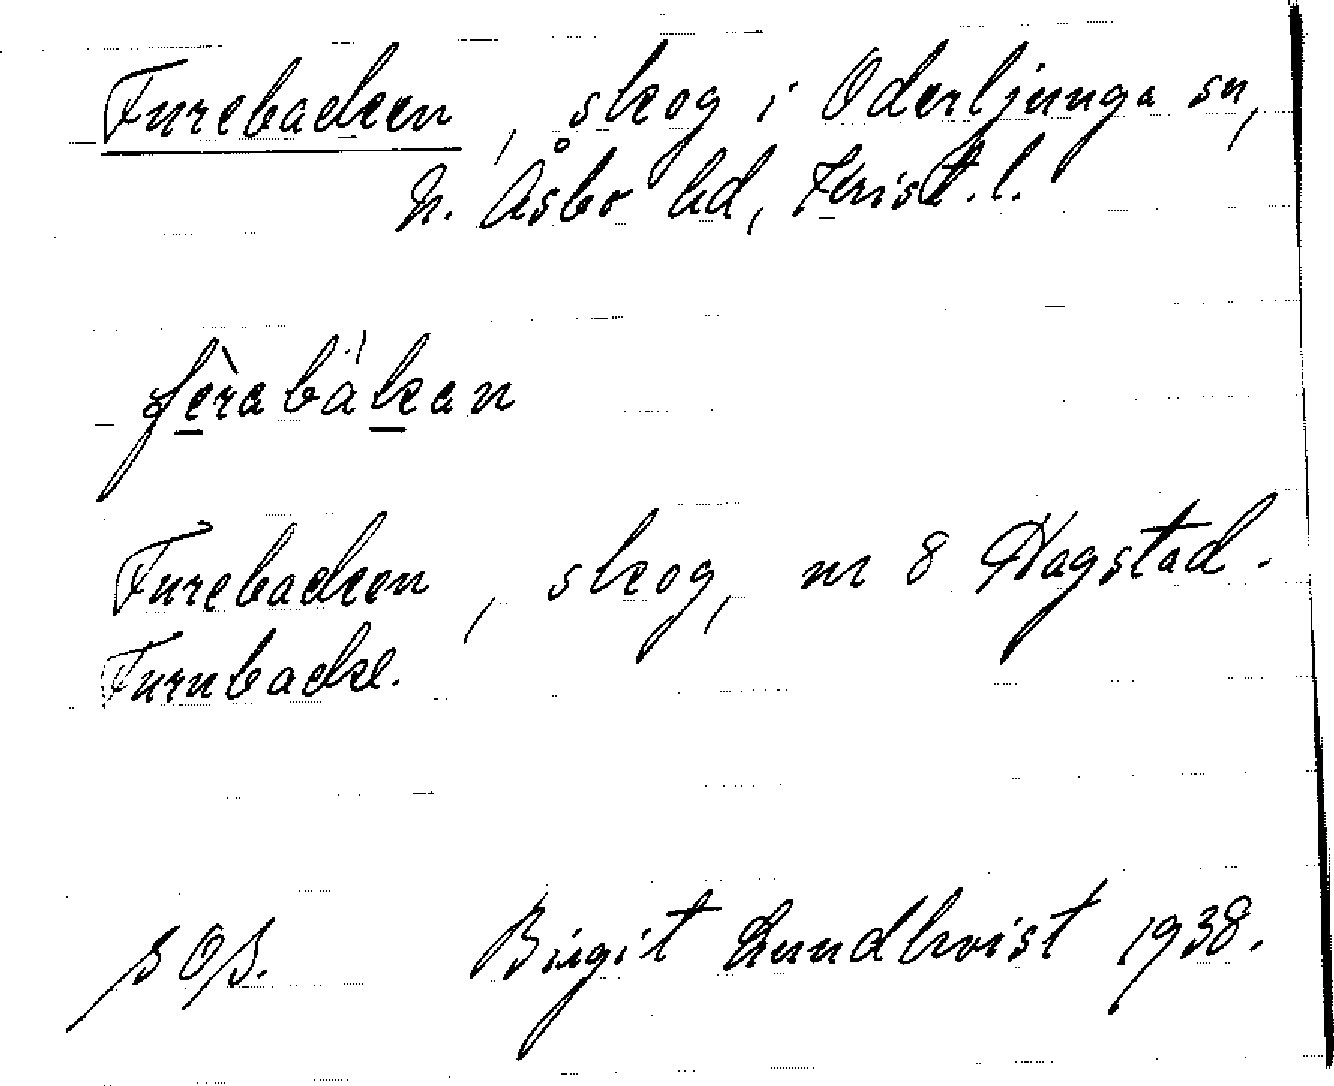 Furebacken, skog i Oderljunga sn,
N. Åsbo hd, Krist. l.
fèrabákan
Furebacken, skog, nr 8 Hagstad.
Furubacke.
SOS. Birgit Lundkvist 1938.